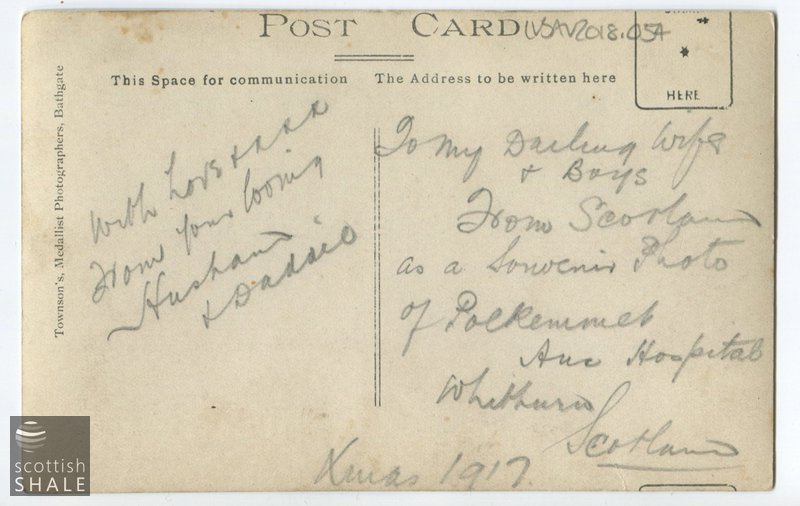 POST CARD
LVSAV2018.057
STAMP
HERE
This Space for communication
The Address to be written here
Townson's, Medallist Photographers, Bathgate
With Love & xxx
From your loving
Husband
& Daddie
To My Darling Wife
& Boys
From Scotland
as a Souvenir Photo
of Polkemmet
Aux Hospital
Whitburn
Scotland
Xmas 1917.
scottish
SHALE